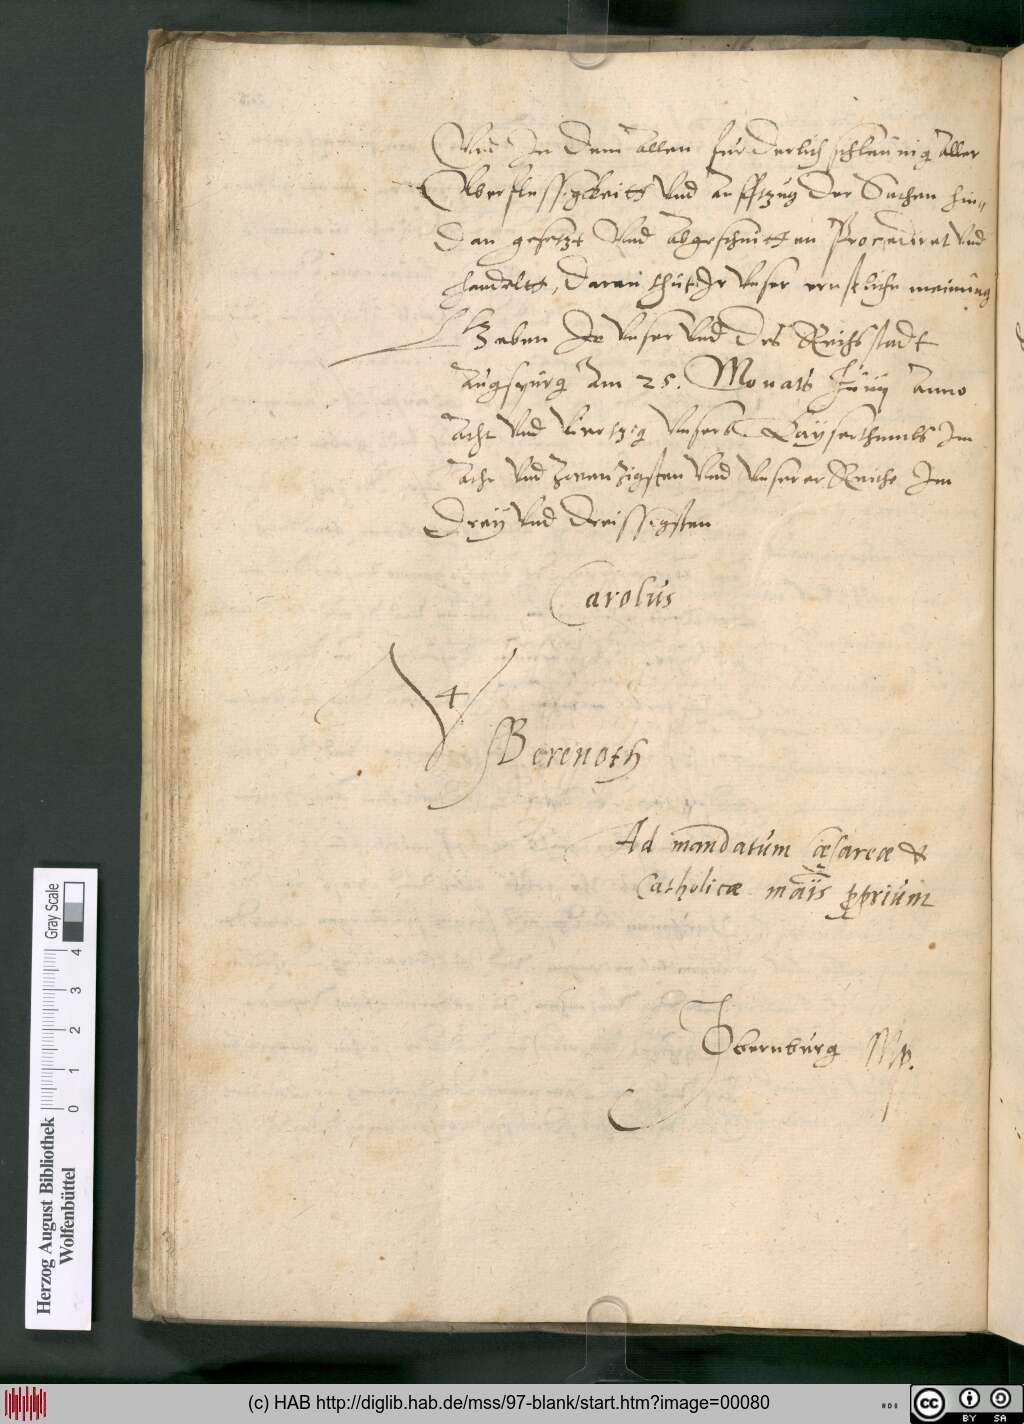 Vnd In dem allen fürderlich schleünig aller
Vberflüssigkeitt Vnd auffzug der Sachen hin=
dan gesetzt Vnd abgeschnitten Procediret Vnd
handelts, daran thut Ir Vnser ernstliche meinüng
Geben In Vnser Vnd des Reichsstadt
Augspürg Am 25. Monats Junÿ Anno
Acht Vnd Viertzig Vnsers Kaÿserthumbs Im
Acht Vnd Zwenzigsten Vnd Vnserer Reiche Im
Dreÿ Vnd dreissigsten
Carolüs
Ad mandatüm cæsareæ &
Catholicæ maiis pprium
Obernbürg Mp.
Herzog August Bibliothek
Wolfenbüttel
0 1 2 3 4
Gray Scale
(c) HAB http://diglib.hab.de/mss/97-blank/start.htm?image=00080
cc BY SA